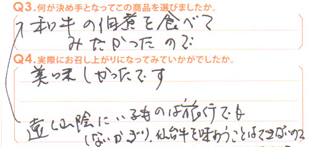 Q3.何が決め手となってこの商品を選びましたか。
和牛の佃煮を食べて
みたかったので
Q4.実際にお召し上がりになってみていかがでしたか。
美味しかったです
遠い山陰にいるものは旅行でも
しないかぎり、仙台牛を味わうことはできないので